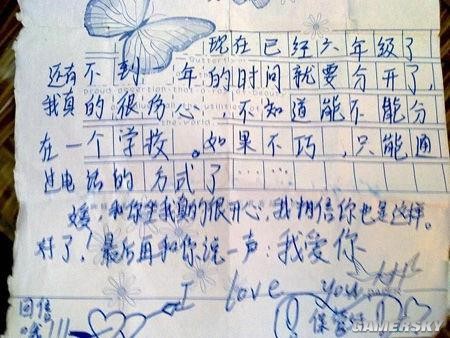 现在已经六年级了
还有不到一年的时间就要分开了,
我真的很伤心,不知道能不能分
在一个学校。如果不巧,只能通
过电话的方式了……
媛,和你坐我真的很开心,我相信你也是这样。
好了!最后再和你说一声:我爱你
I love you
回信
哦!!!
保管好
GAMERSKY